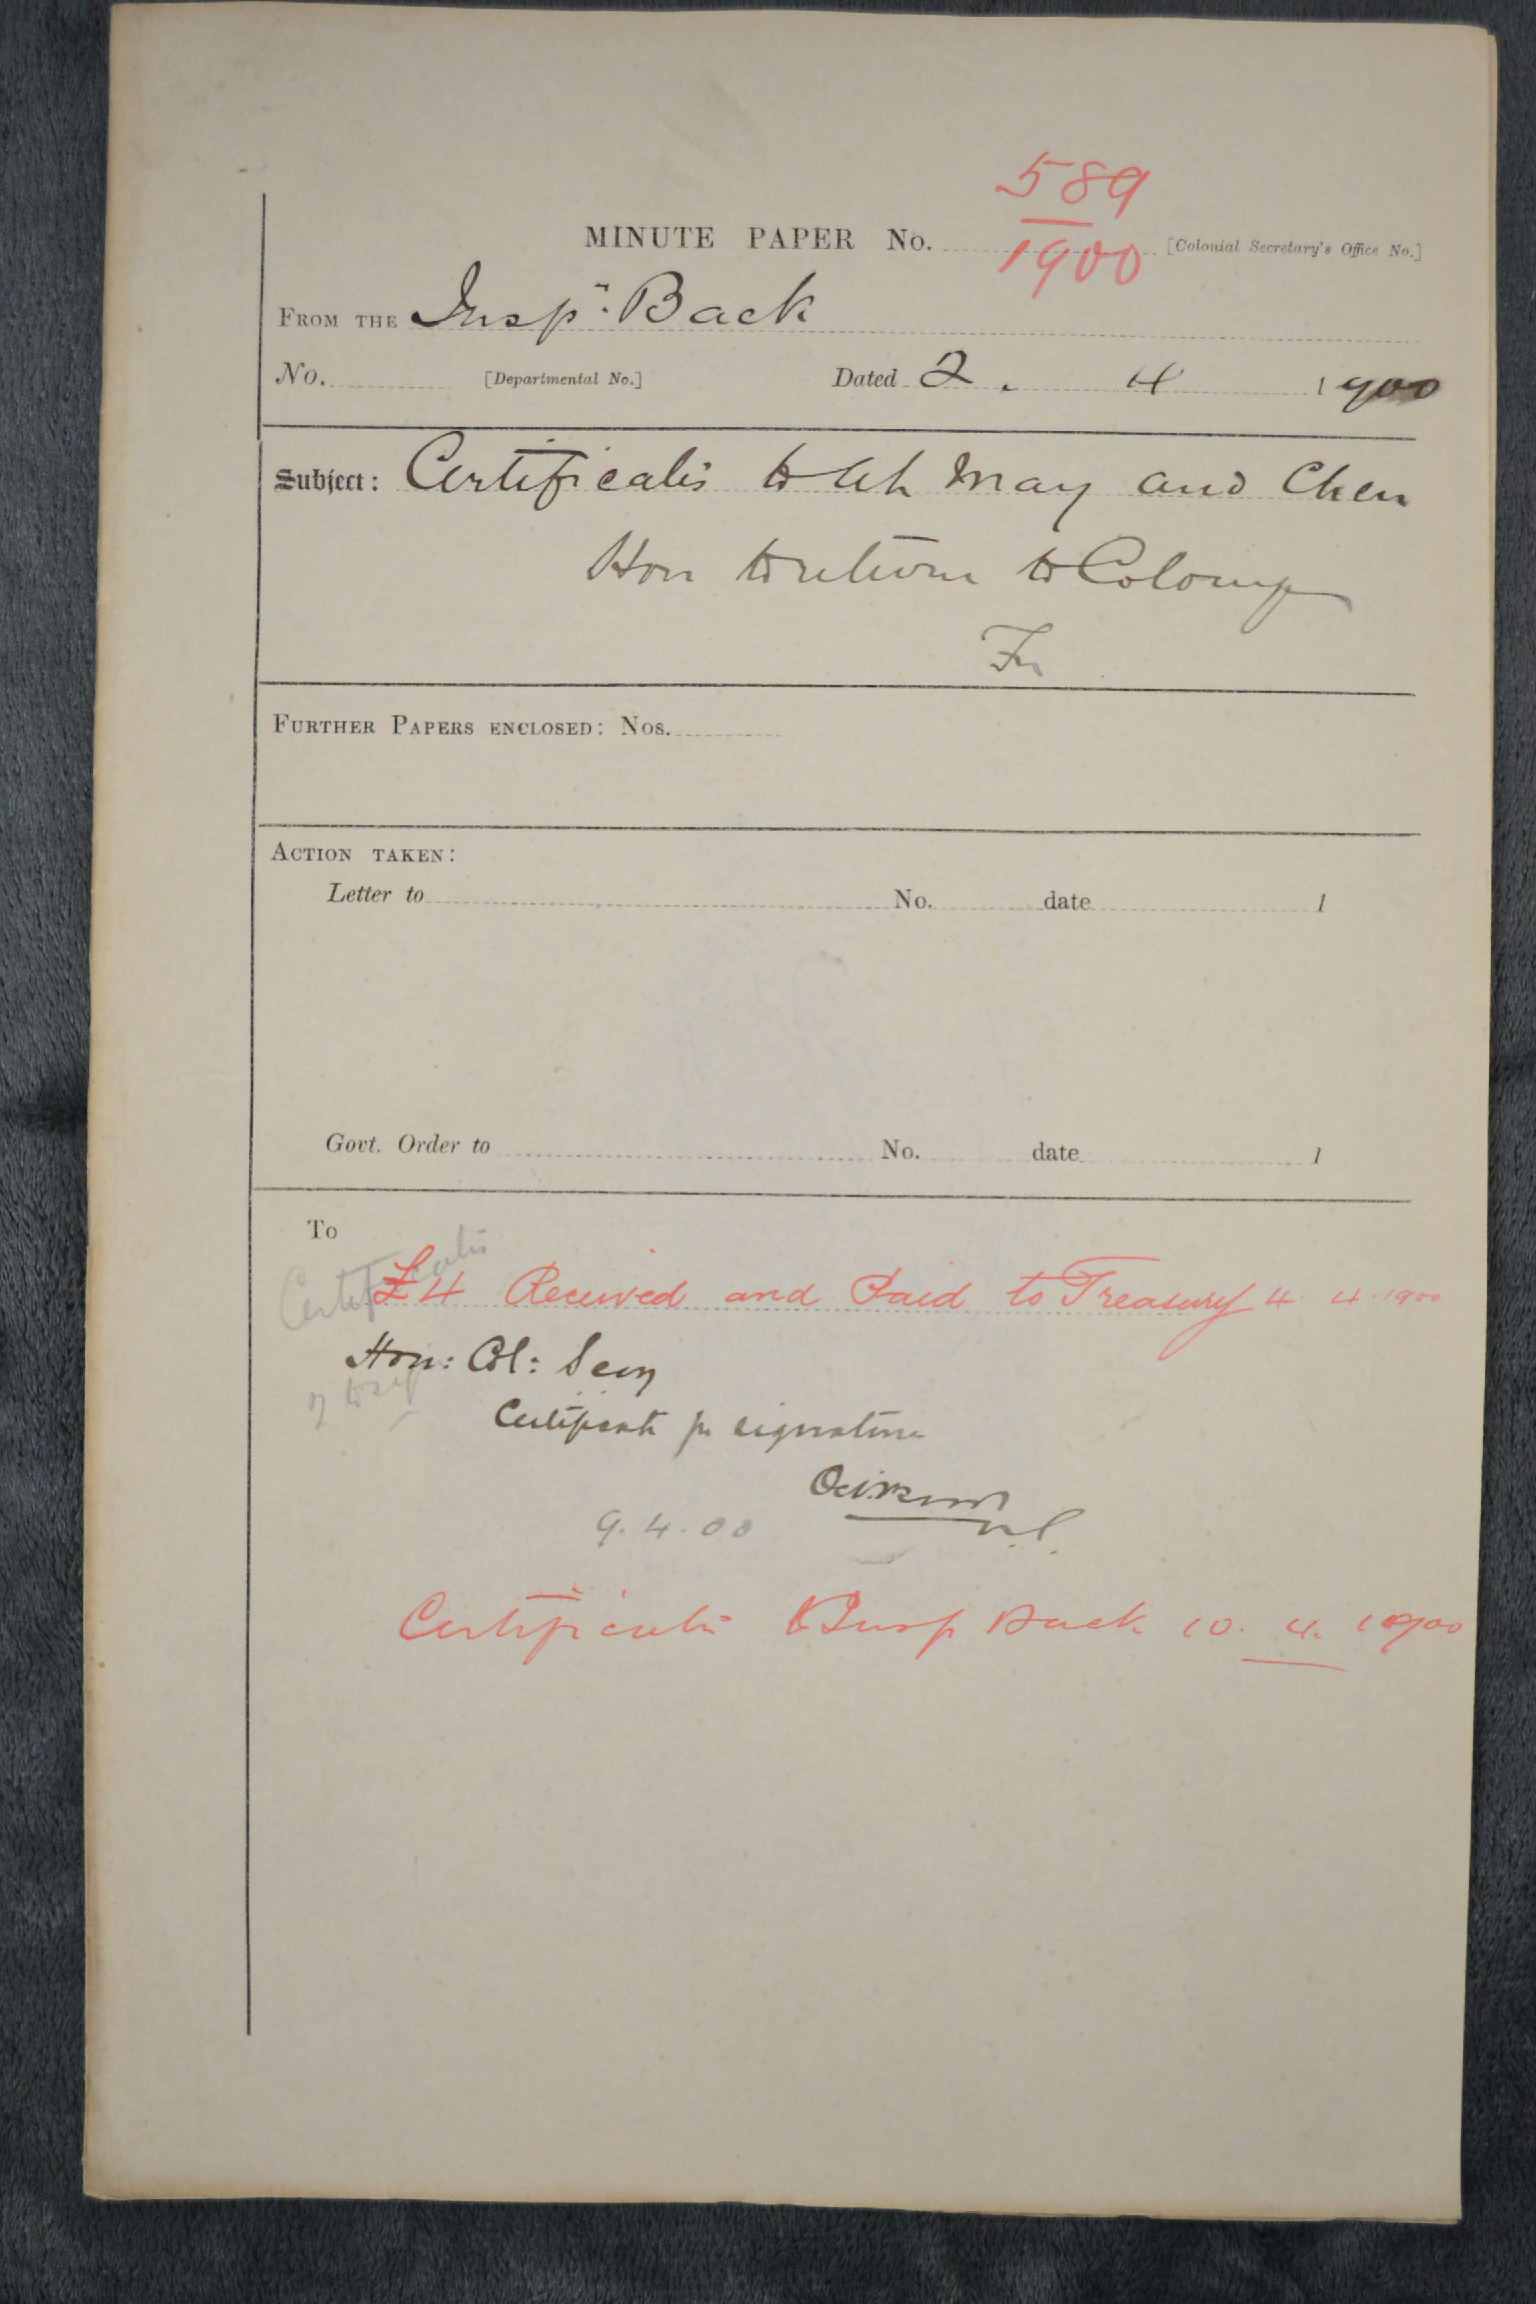 589
MINUTE PAPER No. 1900 [Colonial Secretary's Office No.]
FROM THE Inspr. Back
No. [Departmental No.] Dated 2. 4 1900
Subject: Certificates to Ah May and Chen
Hon to return to Colony
FURTHER PAPERS ENCLOSED: Nos.
ACTION TAKEN:
Letter to No. date 1
Govt. Order to No. date 1
To
Certificates
£4 Received and Paid to Treasury 4. 4. 1900
Hon: Col: Secy
Certificate for signature
9.4.00
Certificates to Insp Back 10. 4. 1900